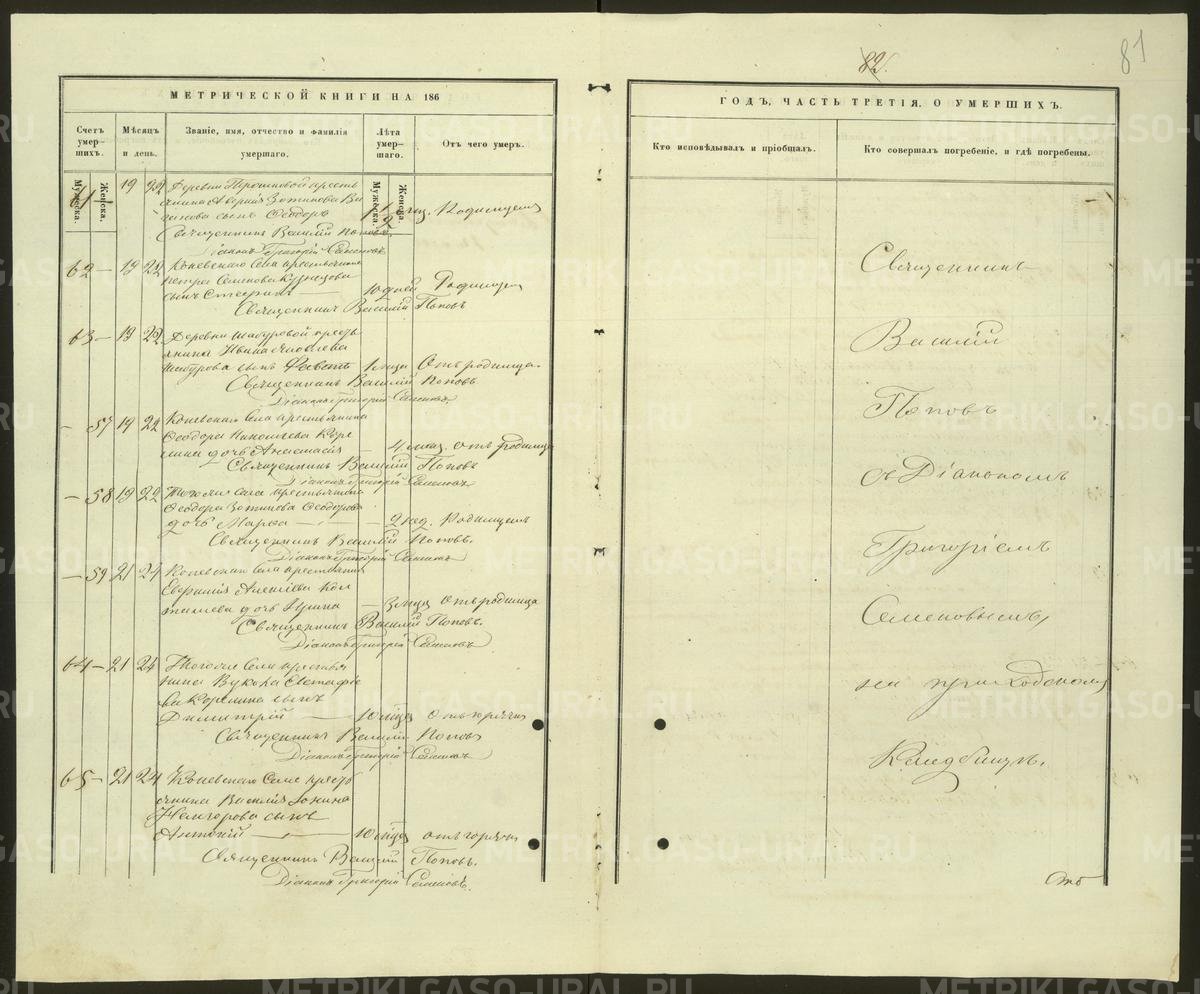 82.
81
МЕТРИЧЕСКОЙ КНИГИ НА 186
ГОДЪ, ЧАСТЬ ТРЕТІЯ, О УМЕРШИХЪ.
Счетъ умер-шихъ.
Мѣсяцъ и день.
Званіе, имя, отчество и фамилія умершаго.
Лѣта умер-шаго.
Отъ чего умеръ.
Кто исповѣдывалъ и пріобщалъ.
Кто совершалъ погребеніе, и гдѣ погребены.
Мужеска.
Женска.
Мужеска.
Женска.
61 — 19 22 Деревни кресть
янина Зотикова
сынъ Ѳеодоръ 1 1/2 Родимцемъ
Священникъ Василій Поповъ.
Діаконъ Григорій Семеновъ
62 — 19 22 Коневскаго Села крестьянина
Петра Семенова Кузнецова
сынъ 10 дней Родимца
Священникъ Василій Поповъ
63 — 19 22. Деревни Шабуровой кресть
янина Ивана Яковлева
Шабурова сынъ 1 мца Отъ родимца.
Священникъ Василій Поповъ.
Діаконъ Григорій Семеновъ.
— 57 19 22 Коневскаго Села крестьянина
Ѳеодора Николаева
дочь Анастасія 4 мца. отъ родимца
Священникъ Василій Поповъ
Діаконъ Григорій Семеновъ
— 58 19 22 Тогоже села крестьянина
Ѳеодора Зотикова Ѳеодорова
дочь Марѳа — 2 нед. Родимцемъ
Священникъ Василій Поповъ.
Діаконъ Григорій Семеновъ
— 59 21 24 Коневскаго Села крестьянина
Алексіева
дочь Ирина — 3 мца Отъ родимца
Священникъ Василій Поповъ.
Діаконъ Григорій Семеновъ
64 — 21 24 Тогоже Села крестья
нина Вукола Евстафіе
ва Корелина сынъ
Димитрій — 10 мца отъ горячки
Священникъ Василій Поповъ
Діаконъ Григорій Семеновъ
65 — 21 24 Коневскаго Села кресть
янина Василія
сынъ
Антоній — 10 мца отъ горячки
Священникъ Василій Поповъ.
Діаконъ Григорій Семеновъ.
Священникъ
Василій
Поповъ
съ Діакономъ
Григоріемъ
Семеновымъ,
на приходскомъ
Кладбищѣ.
METRIKI.GASO-URAL.RU